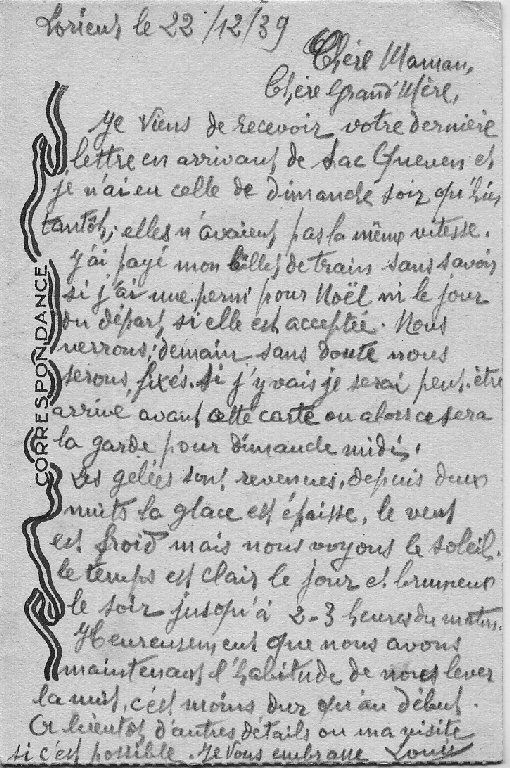 Lorient le 22/12/39
Chère Maman,
Chère Grand'Mère,
Je viens de recevoir votre dernière
lettre en arrivant de Lac Queven et
je n'ai eu celle de dimanche soir qu'
tantôt, elles n'avaient pas la même vitesse.
J'ai payé mon billet de train sans savoir
si j'ai une permi pour Noël ni le jour
du départ si elle est acceptée. Nous
verrons, demain sans doute nous
serons fixés. Si j'y vais je serai peut-être
arrivé avant cette carte ou alors ce sera
la garde pour dimanche midi.
Les gelées sont revenues, depuis deux
nuits la glace est épaisse, le vent
est froid mais nous voyons le soleil.
le temps est clair le jour et brumeux
le soir jusqu'à 2-3 heures du matin.
Heureusement que nous avons
maintenant l'habitude de nous lever
la nuit, c'est moins dur qu'au début.
A bientôt d'autres détails ou ma visite
si c'est possible. Je vous embrasse Louis
CORRESPONDANCE